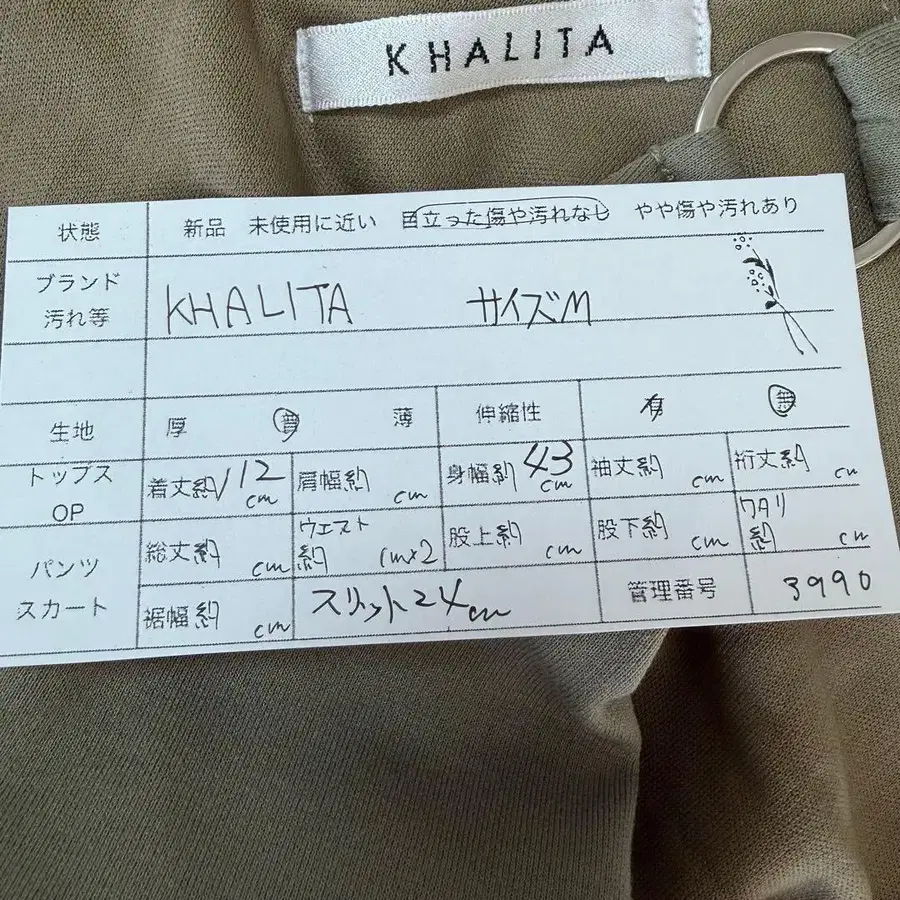 KHALITA
状態 新品 未使用に近い 目立った傷や汚れなし やや傷や汚れあり
ブランド
汚れ等 KHALITA サイズM
生地 厚 普 薄 伸縮性 有 無
トップス
OP 着丈約112cm 肩幅約 cm 身幅約43cm 袖丈約 cm 裄丈約 cm
パンツ
スカート 総丈約 cm ウエスト約 cm×2 股上約 cm 股下約 cm ワタリ約 cm
裾幅約 cm スリット24cm 管理番号 3990